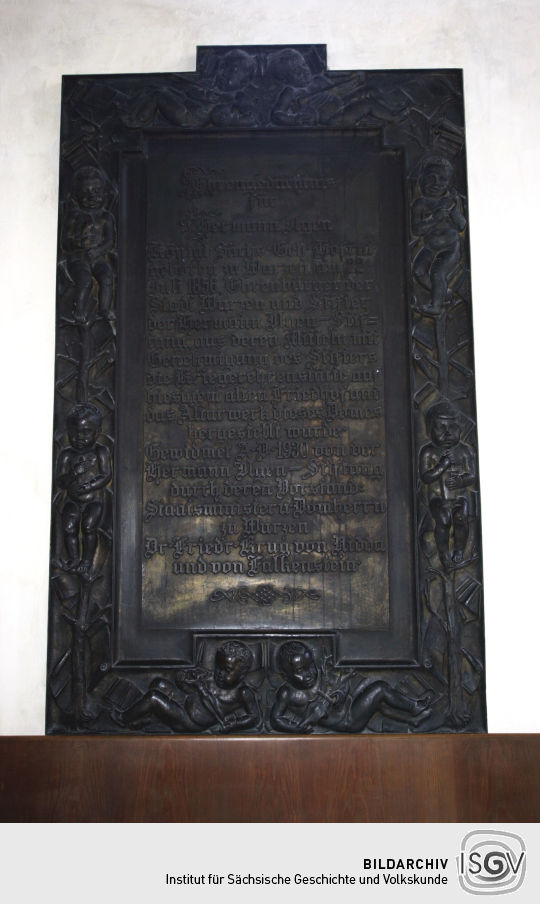 Ehrengedächtnis
für
Hermann Ilgen
Königl Sächs Geh Hofrat
geboren zu Wurzen am 22
Juli 1856 Ehrenbürger der
Stadt Wurzen und Stifter
der Hermann Ilgen–Stif=
tung aus deren Mitteln mit
Genehmigung des Stifters
die Kriegerehrenstätte auf
diesem alten Friedhof und
das Altarwerk dieses Domes
hergestellt wurde
Gewidmet 1930 von der
Hermann Ilgen–Stiftung
durch deren Vorstand
Staatsminister u Domherrn
zu Wurzen
Dr Friedr Krug von Nidda
und von Falkenstein
BILDARCHIV
Institut für Sächsische Geschichte und Volkskunde
ISGV